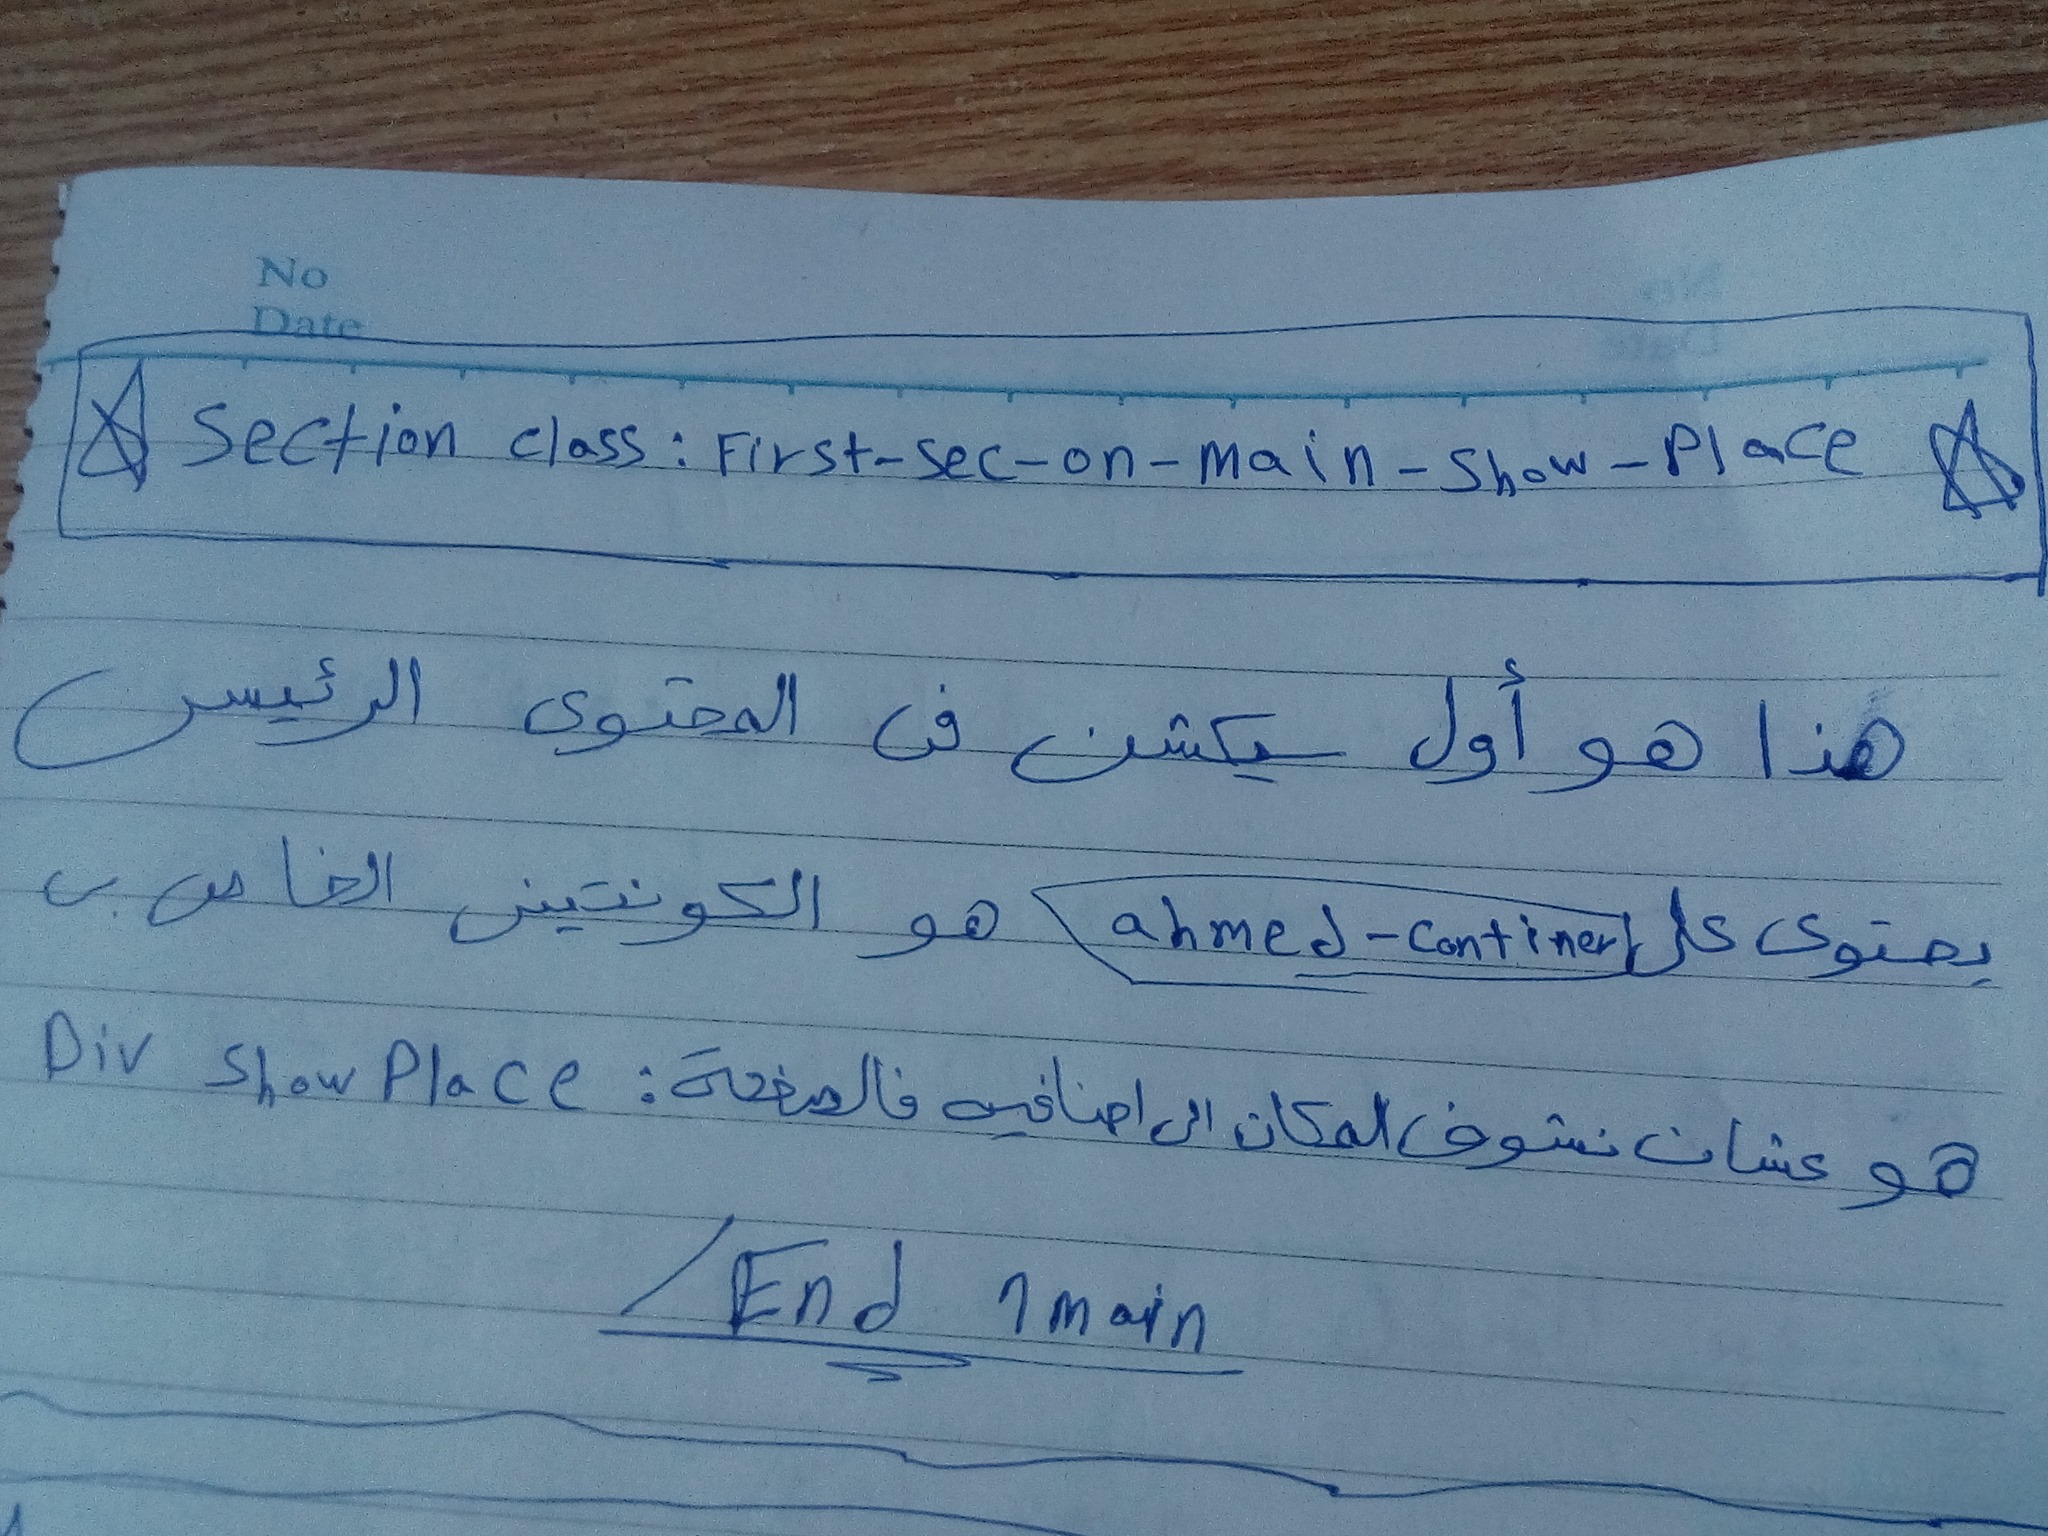 No
Date
Section class: First-sec-on-main-show-Place
هذا هو أول سيكشن فى المحتوى الرئيسى
يحتوى على ahmed-continer هو الكونتينر الخاص ب
Div show Place: هو عشان نشوف المكان الى احنا فيه فالصفحة
End 1 main